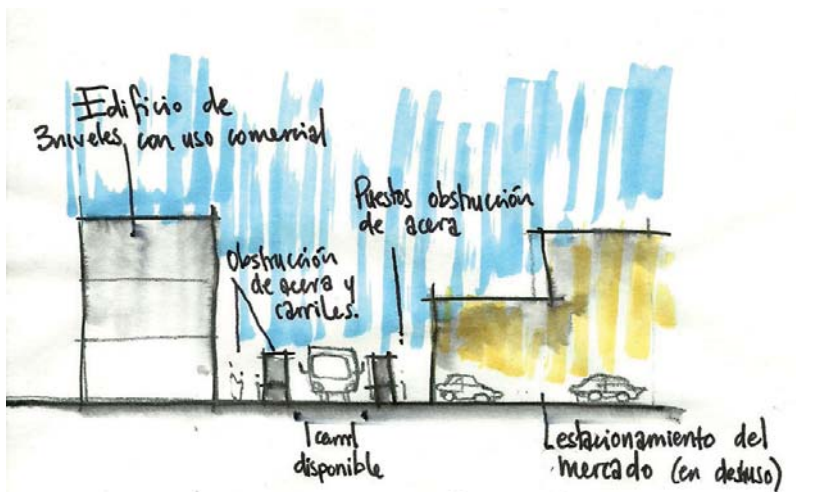 Edificio de
3 niveles con uso comercial
Puestos obstrucción
de acera
Obstrucción
de acera y
carriles.
1 carril
disponible
estacionamiento del
mercado (en desuso)